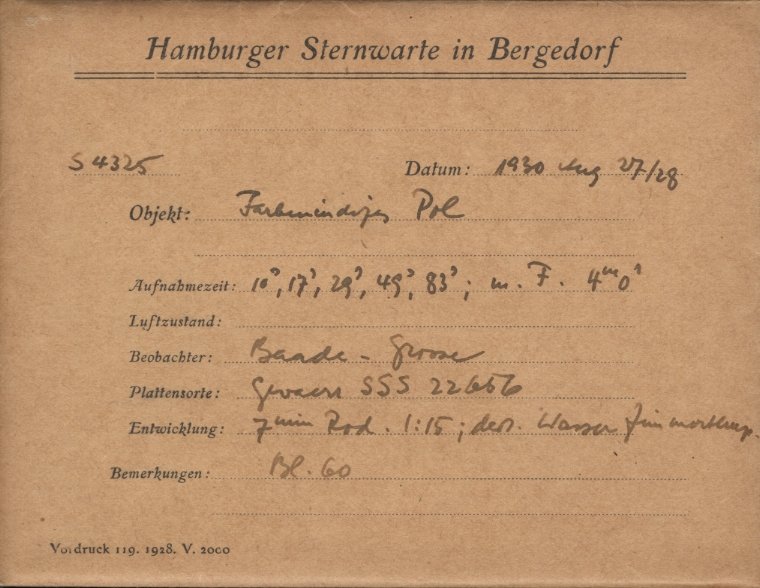 Hamburger Sternwarte in Bergedorf
S 4325 Datum: 1930 Aug 27/28
Objekt: Farbenindizes Pol
Aufnahmezeit: 10ˢ, 17ˢ, 29ˢ, 49ˢ, 83ˢ; m. F. 4ᵐ0ˢ
Luftzustand:
Beobachter: Baade - Grosse
Plattensorte: Gevaert SSS 22656
Entwicklung: 7 min Rod. 1:15; dest. Wasser
Bemerkungen: Bl. 60
Vordruck 119. 1928. V. 2000